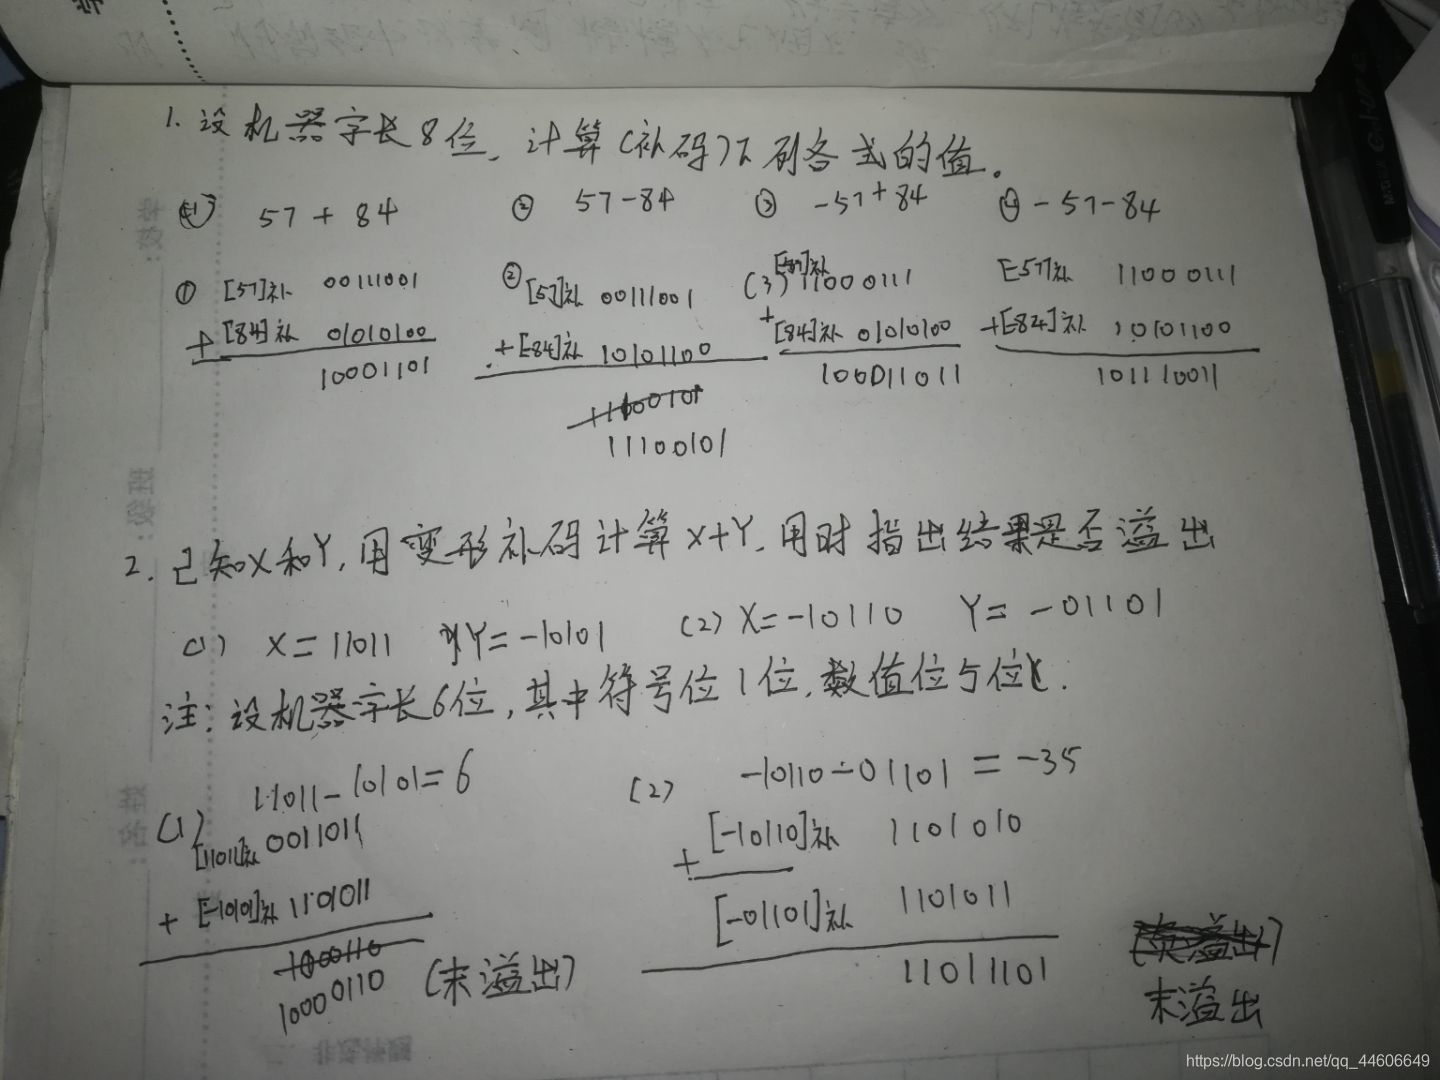 1. 设机器字长8位，计算（补码）下列各式的值。
① 57 + 84 ② 57-84 ③ -57+84 ④ -57-84
① [57]补 00111001 ② [57]补 00111001 (3) [-57]补 11000111 [-57]补 11000111
+ [84]补 01010100 + [-84]补 10101100 + [84]补 01010100 + [-84]补 10101100
10001101 11100101 100011011 101110011
2. 已知X和Y，用变形补码计算X+Y，用时指出结果是否溢出
(1) X=11011 Y=-10101 (2) X=-10110 Y=-01101
注：设机器字长6位，其中符号位1位，数值位5位.
(1) 11011-10101=6 (2) -10110-01101=-35
[11011]补 0011011 [-10110]补 1101010
+ [-10101]补 1101011 + [-01101]补 1101011
10000110 (未溢出) 11011101 未溢出
https://blog.csdn.net/qq_44606649